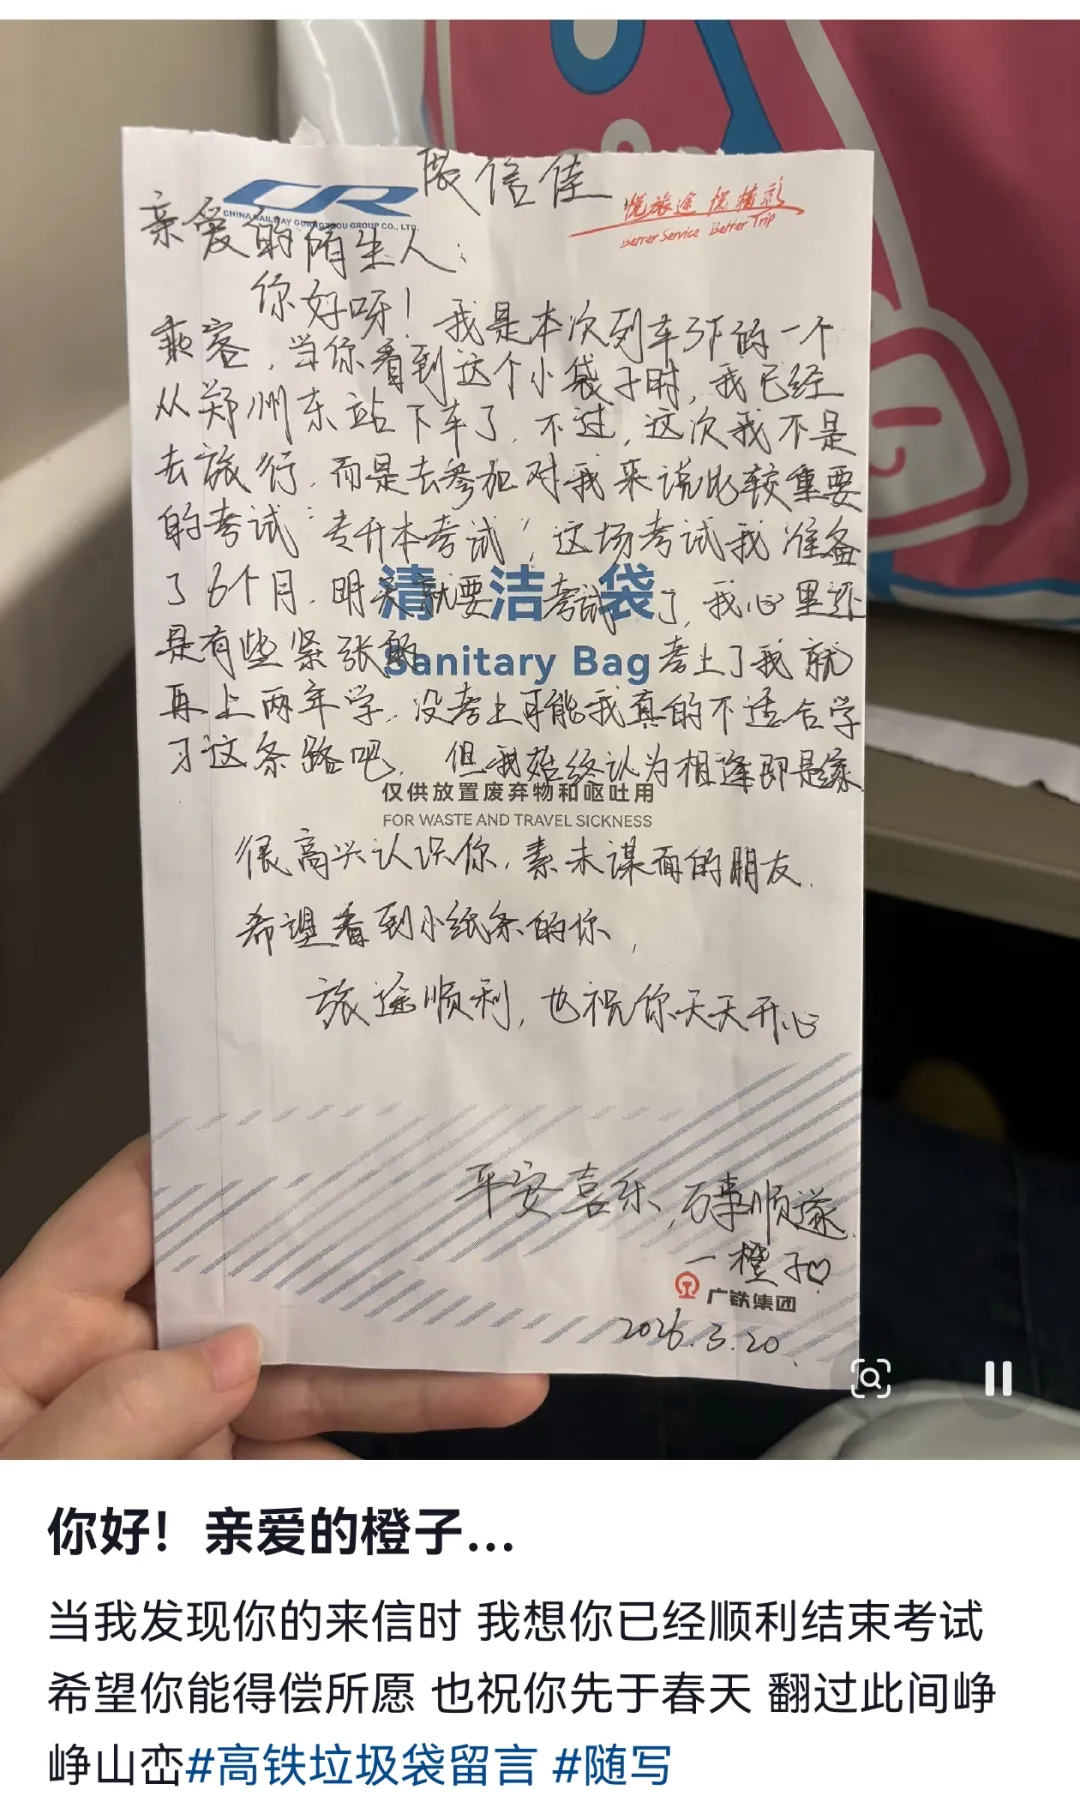 展信佳
CHINA RAILWAY GUANGZHOU GROUP CO., LTD.
悦旅途 悦精彩
Better Service Better Trip
亲爱的陌生人：
你好呀！我是本次列车3F的一个
乘客，当你看到这个小袋子时，我已经
从郑州东站下车了．不过，这次我不是
去旅行，而是去参加对我来说比较重要
的考试“专升本考试”，这场考试我准备
了6个月．明天就要考试了，我心里还
清洁袋
是有些紧张 考上了我就
Sanitary Bag
再上两年学．没考上可能我真的不适合学
习这条路吧．但我始终认为相逢即是缘
仅供放置废弃物和呕吐用
FOR WASTE AND TRAVEL SICKNESS
很高兴认识你，素未谋面的朋友．
希望看到小纸条的你，
旅途顺利，也祝你天天开心
平安喜乐，万事顺遂
—橙子♡
广铁集团
2026.3.20．
你好！亲爱的橙子...
当我发现你的来信时 我想你已经顺利结束考试
希望你能得偿所愿 也祝你先于春天 翻过此间峥
峥山峦#高铁垃圾袋留言 #随写